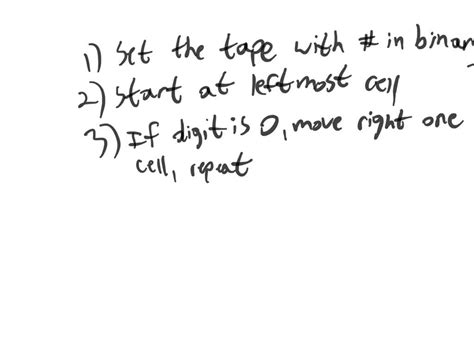 1) Set the tape with # in binary
2) Start at leftmost cell
3) If digit is 0, move right one
cell, repeat